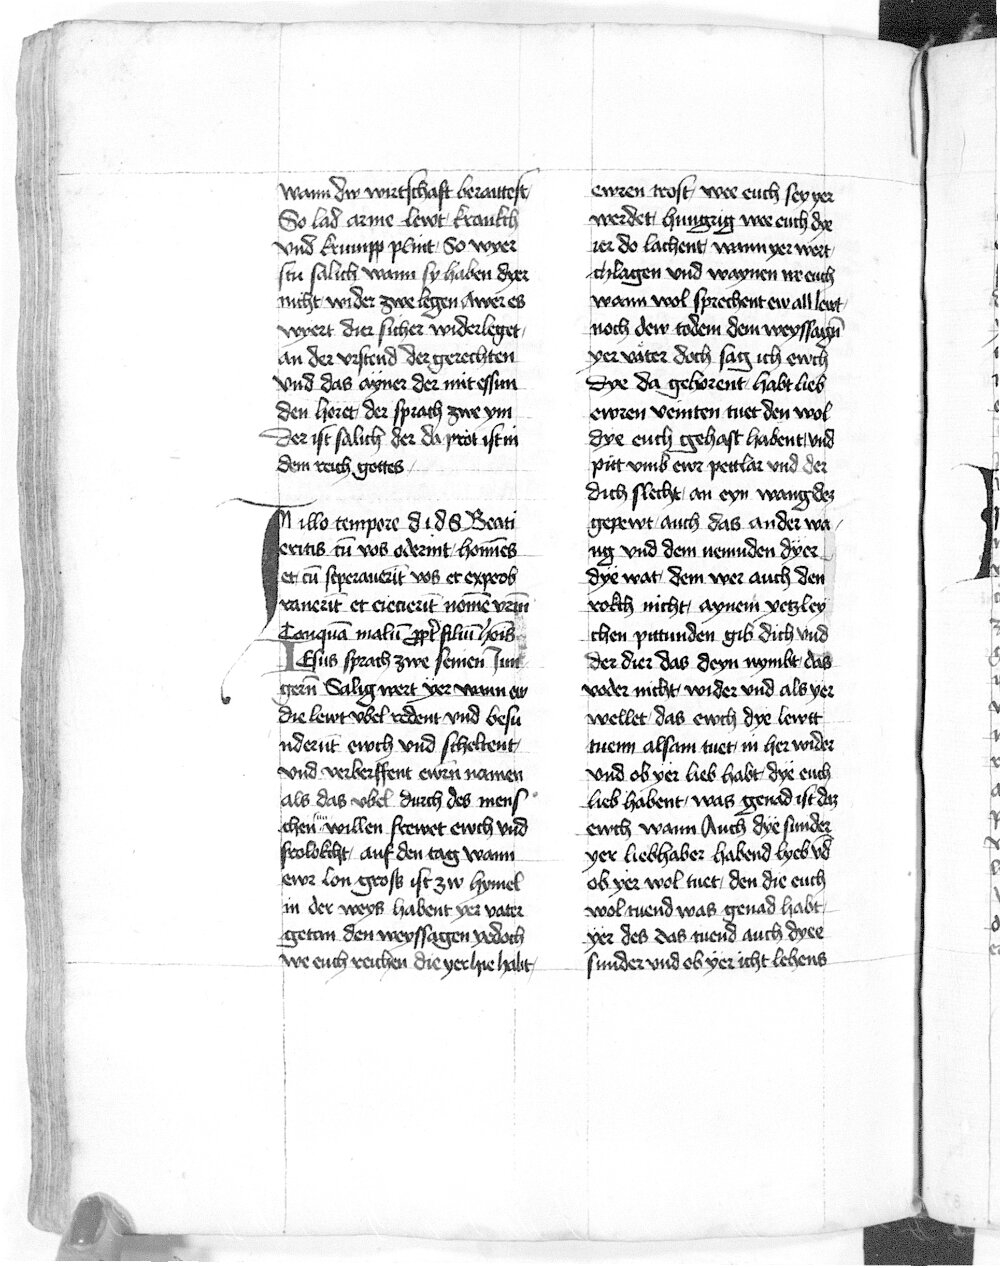 wann dw wirtschaft beraittest
So lad arme lewt krankch
vnd krump plint So wyer
stu salich wann sy haben dyer
nicht wider zwe legen Awer es
wyert dier sicher widerleget
an der vrstend der gerechten
vnd das ayner der mit essun
den horet der sprach zwe ym
Der ist salich der da prot ist in
dem reich gottes
In illo tempore d i d s Beati
eritis cū vos oderint homēs
et cū seperauerīt vos et exprob
rauerīt et eiecierīt nomē vrm̄
Tanquā malū ꝓpt̄ filiū hoīs
Iesus sprach zwe seinen Jun
gern̄ Salig wert yer wann ew
die lewt vbel redent vnd besu
nderūt ewch vnd scheltent
vnd verberffent ewrn namen
als das vbel durch des mens
chen sun willen frewet ewch vnd
frolokcht auf den tag wann
ewr lon gross ist zw hymel
in der weys habent yer vater
getan den weyssagen yedoch
we euch reichen die yer hie habt
ewren trost wee euch sey yer
werdet hungrig wee euch dye
ier do lachent wann yer wert
chlagen vnd waynen we euch
wann wol sprechent ew all lewt
noch dew todem dem weyssagn̄
yer väter doch sag ich ewch
dye da gehorent habt lieb
ewren veinten tuet den wol
dye euch gehast habent vnd
pitt vmb ewr pettlar vnd der
dich slecht an eyn wang dez
gepewt auch das ander wa
ng vnd dem nemuden dyer
dye wat dem wer auch den
rokch nicht aynem yetzley
chen pittunden gib dich vnd
der dier das deyn nymbt das
voder nicht wider vnd als yer
wellet das ewch dye lewtt
tuenn alsam tuet in her wider
vnd ob yer lieb habt dye euch
lieb habent was genad ist daz
ewch wann Auch dye sunder
yer liebhaber habend lyeb vd̄
ob yer wol tuet den die euch
wol tuend was genad habt
yer des das tuend auch dyee
sunder vnd ob yer icht lehens